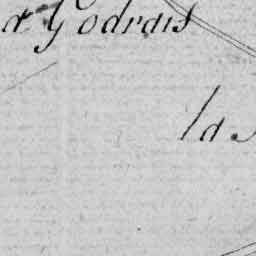 a Godrais
la